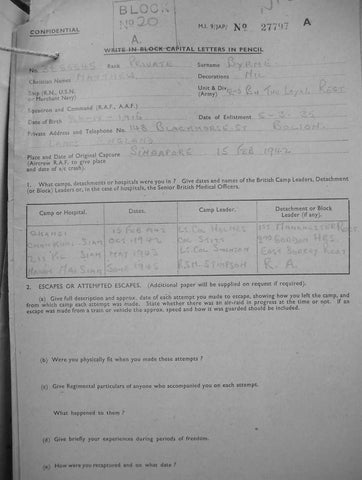 BLOCK
Nº 20
A.
CONFIDENTIAL
M.I. 9/JAP/ Nº 27797 A
WRITE IN BLOCK CAPITAL LETTERS IN PENCIL
No. Rank PRIVATE Surname BYRNE
Christian Names MATTHEW Decorations NIL
Ship (R.N., U.S.N. or Merchant Navy) Unit & Div. (Army) 2ND BN THE LOYAL REGT
Squadron and Command (R.A.F., A.A.F.)
Date of Birth 1916 Date of Enlistment 6-3-35
Private Address and Telephone No. 148 BLACKHORSE ST BOLTON
LANCS ENGLAND
Place and Date of Original Capture SINGAPORE 15 FEB 1942
(Aircrew R.A.F. to give place
and date of a/c crash).
1. What camps, detachments or hospitals were you in ? Give dates and names of the British Camp Leaders, Detachment
(or Block) Leaders or, in the case of hospitals, the Senior British Medical Officers.
Camp or Hospital. Dates. Camp Leader. Detachment or Block Leader (if any).
CHANGI 15 FEB 1942 LT COL HOLMES 1ST MANCHESTER REGT
SIAM OCT 1942 COL 2ND GORDON HRS
SIAM MAY 1943 LT COL EAST SURREY REGT
SIAM JUNE 1945 R.S.M. R.A.
2. ESCAPES OR ATTEMPTED ESCAPES. (Additional paper will be supplied on request if required).
(a) Give full description and approx. date of each attempt you made to escape, showing how you left the camp, and
from which camp each attempt was made. State whether there was an air-raid in progress at the time or not. If an
escape was made from a train or vehicle the approx. speed and how it was guarded should be included.
(b) Were you physically fit when you made these attempts ?
(c) Give Regimental particulars of anyone who accompanied you on each attempt.
What happened to them ?
(d) Give briefly your experiences during periods of freedom.
(e) How were you recaptured and on what date ?